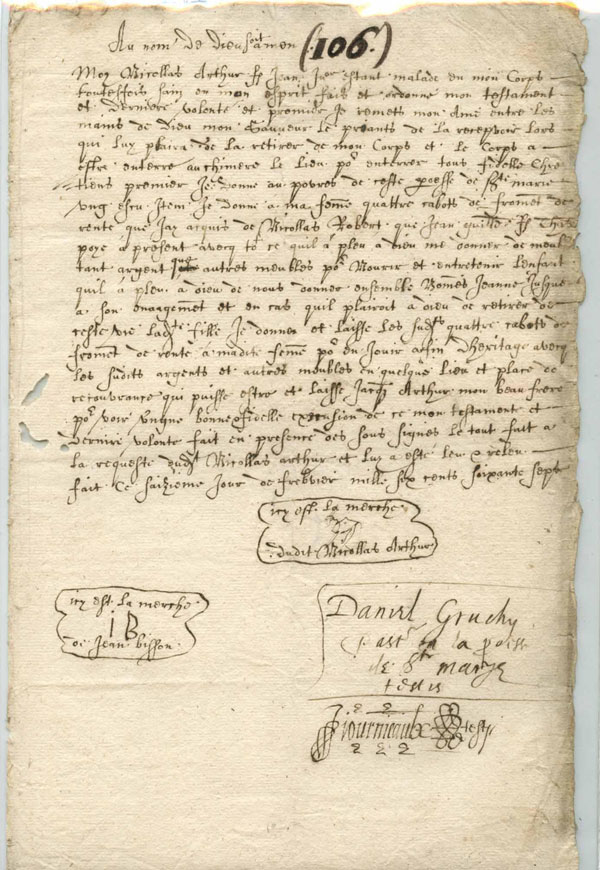 Au nom de dieu soit amen (106.)
Moy Nicollas Arthur fs Jean Jer estant malade en mon Corps
toutesfois sain en mon esprit fais et ordonne mon testament
et derniere volonte et premier Je remets mon Ame entre les
mains de Dieu mon Sauveur le priants de la recepvoir lors
qui luy plaira de la retirer de mon Corps et le Corps a
estre enterre au chimere le lieu por enterrer tous fidelle Chre
tiens premier Je donne au povres de ceste poesse de Ste marie
ung escu Item Je donne a ma feme quattre cabots de froment de
rente que Jay acquis de Nicollas Robert que Jean fs
paye a present avecq tt ce quil a pleu a dieu me donner de meubl
tant argent que autres meubles por Nourir et entretenir Lenfant
quil a pleu a dieu de nous donner ensemble Jeanne Jusque
a son et en cas quil plairoit a dieu de retirer de
ceste vie Ladte fille Je donne et laisse les sudts quattre cabots de
froment de rente a madite feme por en Jouir a fin dheritage avecq
les sudits argents et autres meubles en quelque lieu et place de
recouvrance qui puisse estre et laisse Jacq Arthur mon beau frere
por voir ungne bonne & fidelle exicusion de ce mon testament et
derniere volonte fait en presence des sous signes le tout fait a
la requeste dudt Nicollas arthur et luy a este leu & releu
fait Ce saizieme Jour de frebvier mille six cents soixante sept
icy est la merche
dudit Nicollas Arthur
icy est la merche
IB
de Jean bisson
Daniel Gruchy
de la poisse
de Ste marye
testis